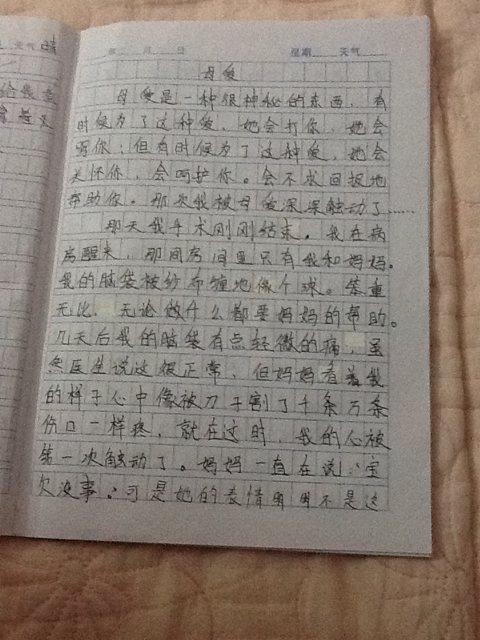 天气 晴
年 月 日 星期 天气
母爱
母爱是一种很神秘的东西，有
时候为了这种爱，她会打你，她会
骂你，但有时候为了这种爱，她会
关怀你，会呵护你。会不求回报地
帮助你。那次我被母爱深深触动了……
那天我手术刚刚结束。我在病
房醒来，那间房间里只有我和妈妈。
我的脑袋被纱布缠地像个球。笨重
无比，无论做什么都要妈妈的帮助。
几天后我的脑袋有点轻微的痛，虽
然医生说这很正常，但妈妈看着我
的样子心中像被刀子割了千条万条
伤口一样疼，就在这时，我的心被
第一次触动了。妈妈一直在说：宝
贝没事。可是她的表情明明不是这